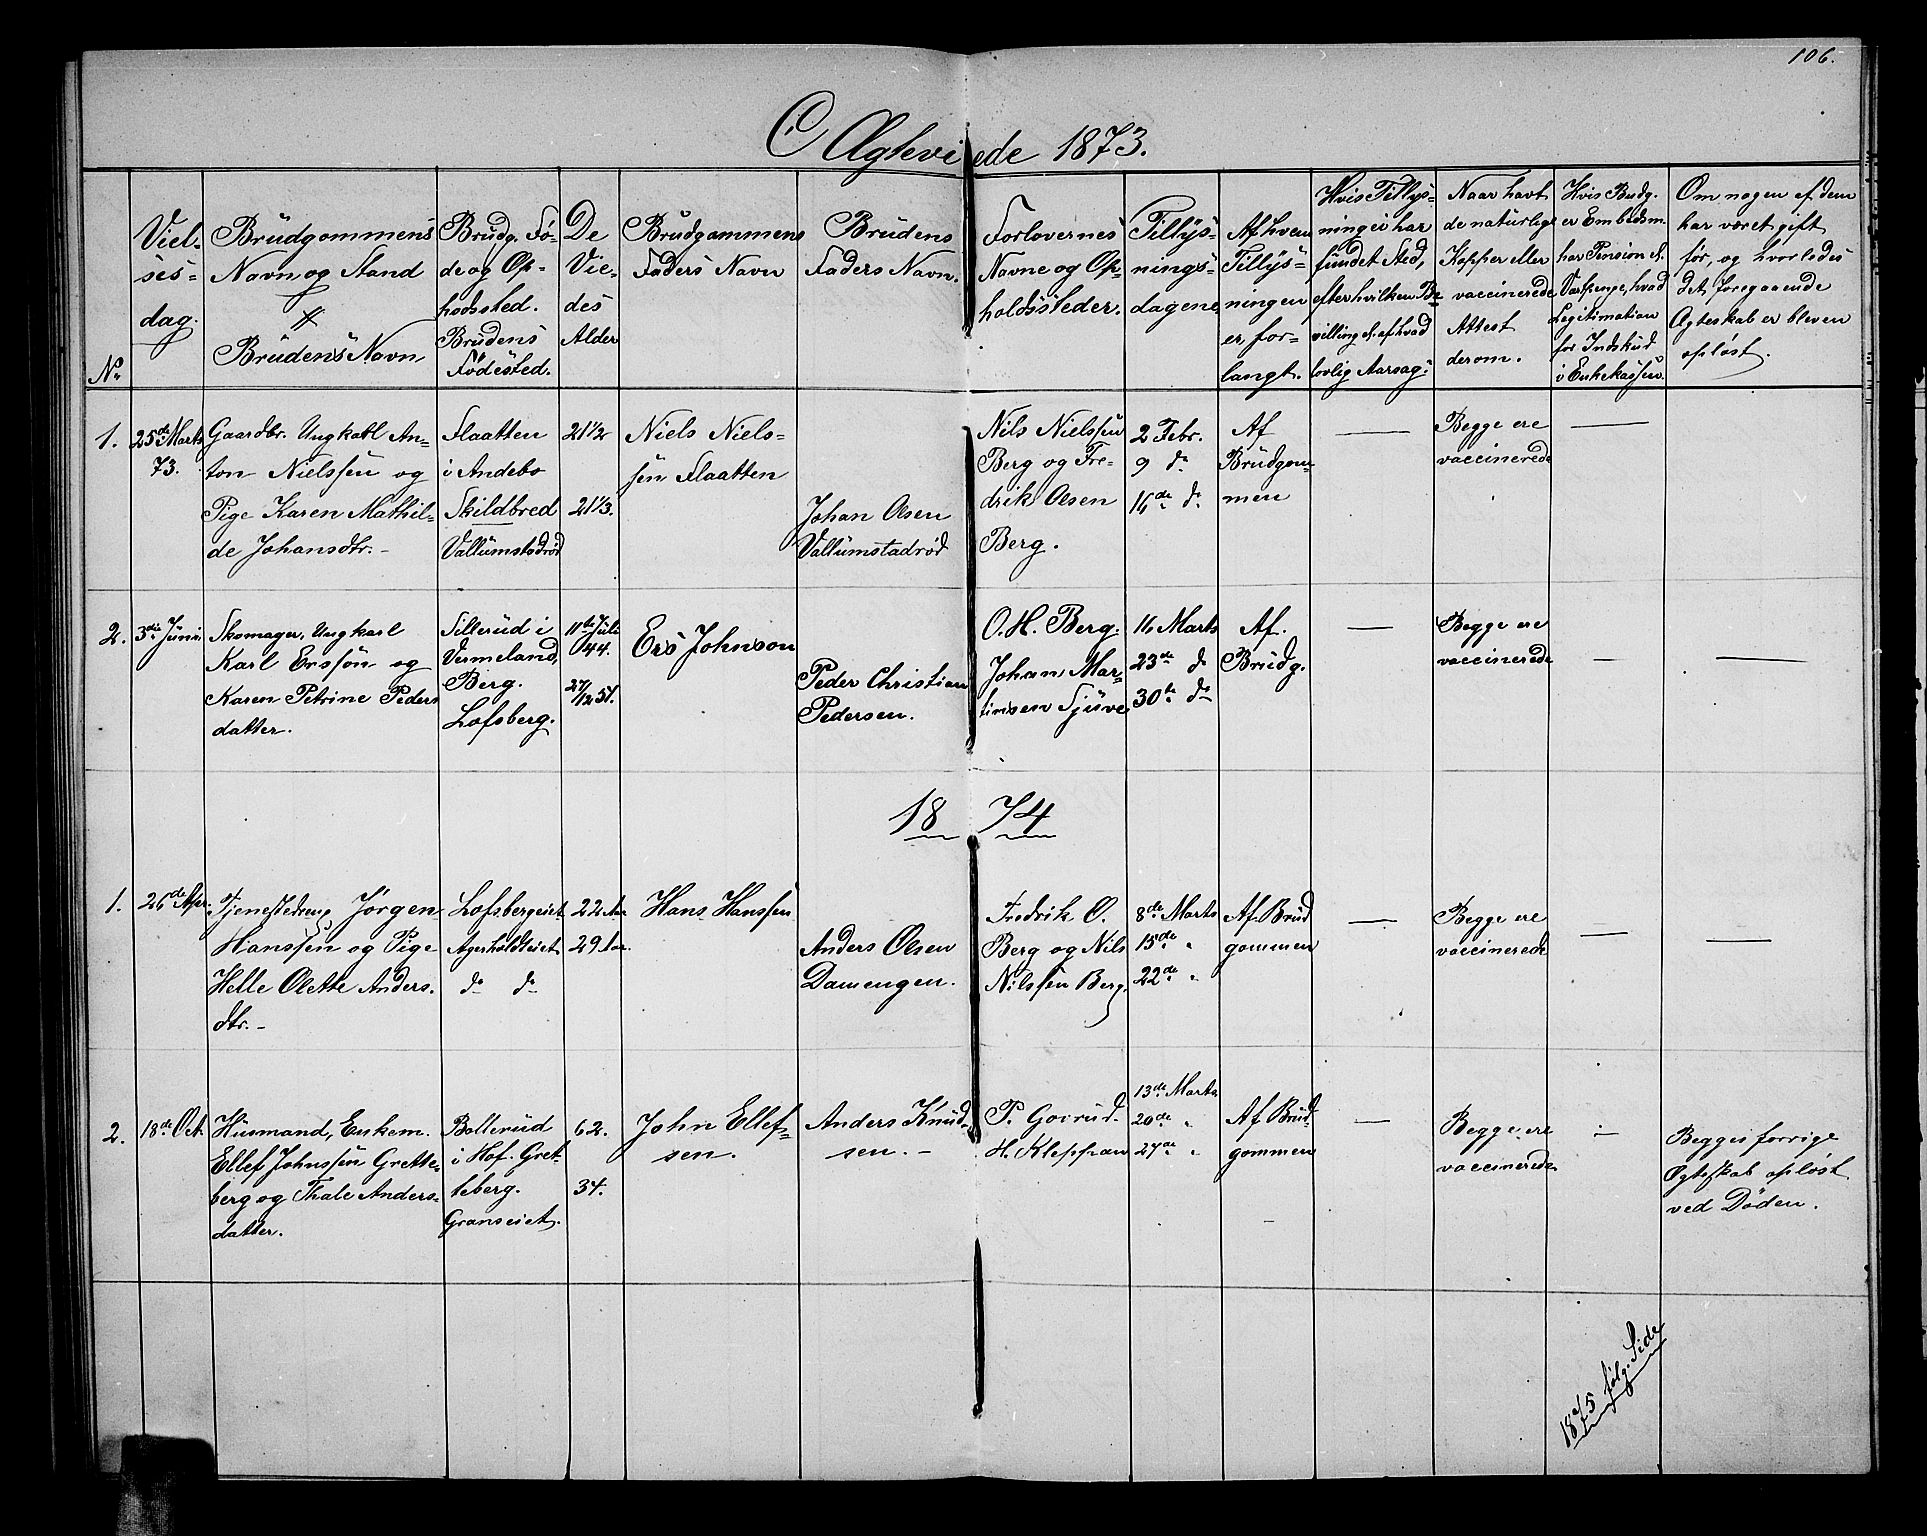 106.
C Ægteviede 1873.
No
Viel-
ses-
dag.
Brudgommens
Navn og Stand
Brudens Navn
Brudg. Fø-
de og Op-
holdssted.
Brudens
Födested.
De
Vie-
des
Alder
Brudgommens
Faders Navn
Brudens
Faders Navn.
Forlovernes
Navne og Op-
holdssteder.
Tillys-
nings-
dagene
Af hvem
Tillys-
ningen
er for-
langt.
Hvis Tillys-
ning ei har
fundet Sted,
efter hvilken Be-
villing el. af hvad
lovlig Aarsag.
Naar havt
de naturlige
Kopper eller
vaccinerede
Attest
derom.
Hvis Budg.
er Embedsm.
har Pension el.
Vartpenge, hvad
Legitimation
for Indskud
i Enkekassen.
Om nogen af dem
har været gift
før, og hvorledes
det foregaaende
Ægteskab er bleven
opløst.
1.
25de Marts
73.
Gaardbr. Ungkarl An-
ton Nielssen og
Pige Karen Mathil-
de Johansdtr. -
Flaatten
i Andebo
Skildbred
Vallumstadrød
21 1/2
21 1/3.
Niels Niels-
sen Flaatten
Johan Olsen
Vallumstadrød
Nils Nielssen
Berg og Fre-
drik Olsen
Berg.
2 Febr.
9 do
16de do
Af
Brudgom-
men
Begge ere
vaccinerede
2.
3die Juni.
Skomager, Ungkarl
Karl Ersson og
Karen Petrine Peders
datter.
Sillerud i
Vermeland,
Berg.
Lofsberg.
11te Juli
44.
27/12 51.
Ers Johnson
Peder Christian
Pedersen.
O. H. Berg.
Johan Mar-
tinsen Sjuve
16 Marts
23de do
30te do
Af.
Brudg.
Begge ere
vaccinerede
18 74
1.
26de Apr.
Tjenestedreng Jørgen
Hanssen og Pige
Helle Olette Anders.
dtr. -
Lofsbergeiet
Agerholdteiet
do do
22 Aar
29 Aar.
Hans Hanssen
Anders Olsen
Damengen.
Fredrik O.
Berg og Nils
Nilssen Berg.
8de Marts
15de "
22de "
Af Brud
gommen
Begge ere
vaccinerede
2.
18de Oct.
Husmand, Enkem.
Ellef Johnssen Grette-
berg og Thale Anders-
datter.
Bollerud
i Hof. Gret-
teberg.
Granseiet.
62.
34.
John Ellef-
sen.
Anders Knud-
sen. -
P. Goirud.
H. Kleppan
13de Marts
20de "
27de "
Af Brud-
gommen
Begge ere
vaccinerede
Begges forrige
Ægteskab opløst
ved Döden.
1875 følg. Side